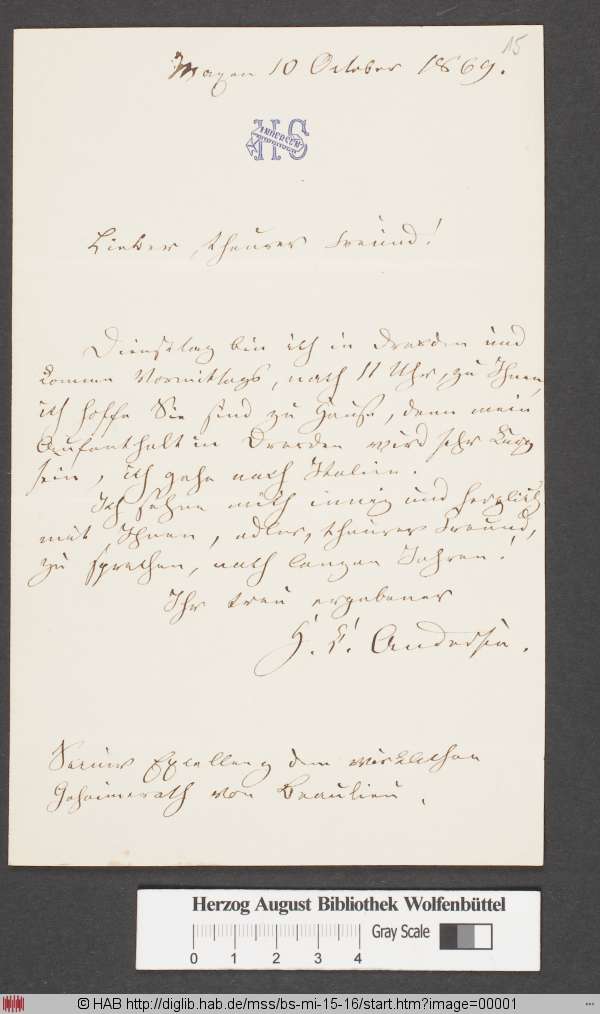 15
Maxen 10 October 1869.
HS
ANDERSEN
Lieber, theurer Freund!
Dienstag bin ich in Dresden und
komme Vormittags, nach 11 Uhr, zu Ihnen,
ich hoffe Sie sind zu Hause, denn mein
Aufenthalt in Dresden wird sehr kurz
sein, ich gehe nach Italien.
Ich sehne mich innig und herzlich
mit Ihnen, edler, theurer Freund,
zu sprechen, nach langen Jahren!
Ihr treu ergebener
H. C. Andersen.
Seiner Excellenz dem wirklichen
Geheimerath von Beaulieu.
Herzog August Bibliothek Wolfenbüttel
0 1 2 3 4
Gray Scale
© HAB http://diglib.hab.de/mss/bs-mi-15-16/start.htm?image=00001